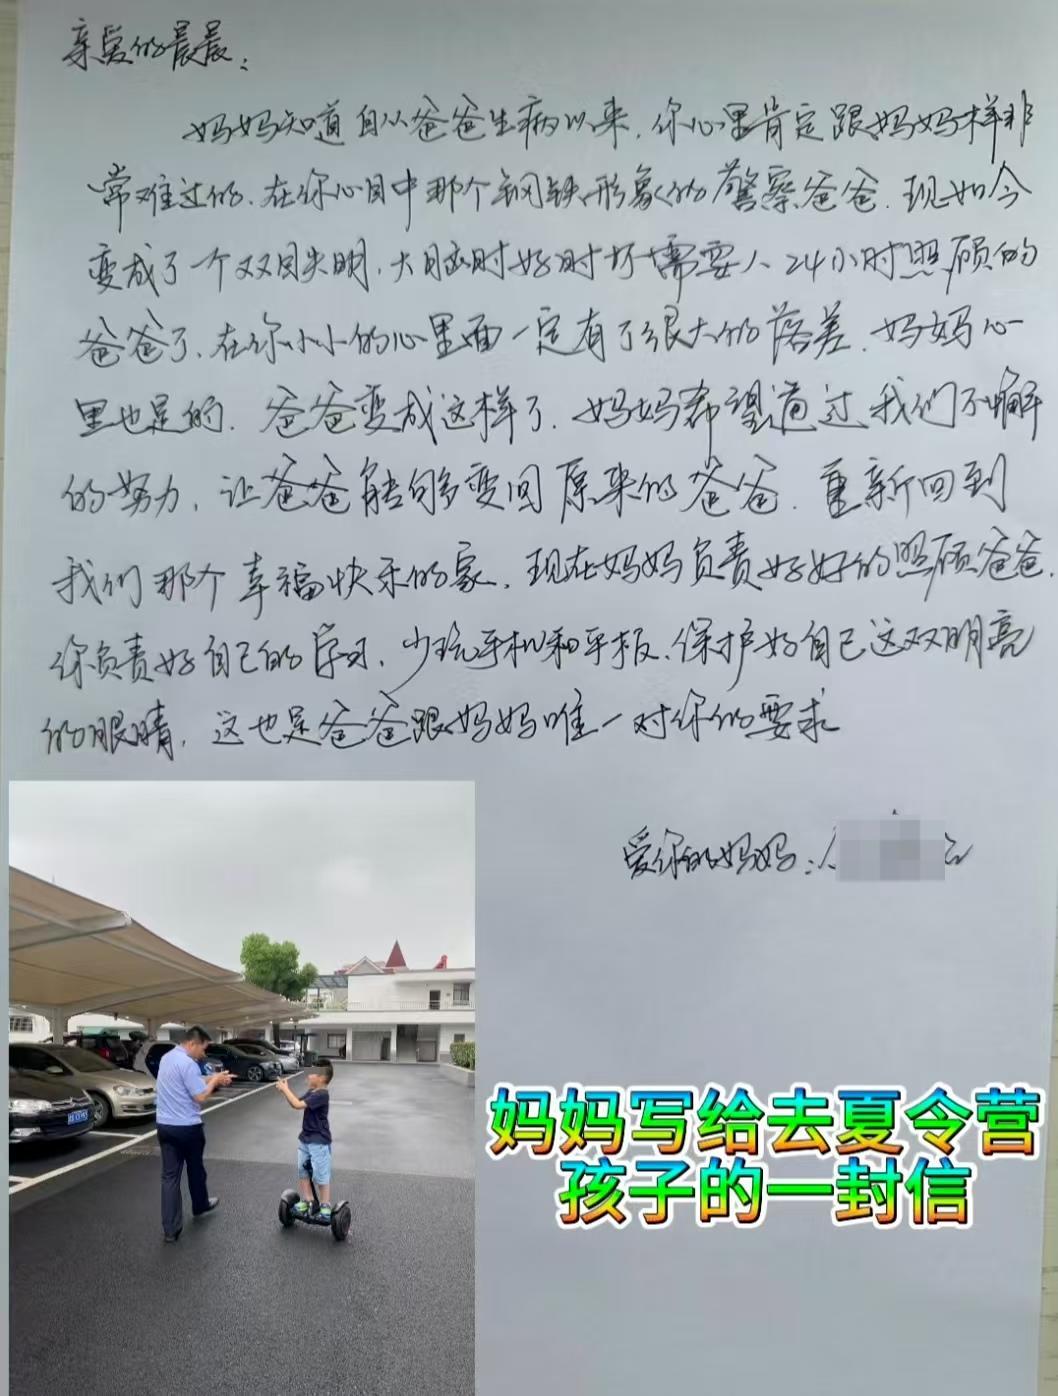 亲爱的晨晨：
妈妈知道自从爸爸生病以来，你心里肯定跟妈妈样非
常难过的、在你心目中那个钢铁形象的警察爸爸、现如今
变成了一个双目失明，大脑时好时坏需要人24小时照顾的
爸爸了、在你小小的心里面一定有了很大的落差、妈妈心
里也是的、爸爸变成这样了、妈妈希望通过我们不懈
的努力，让爸爸能够变回原来的爸爸、重新回到
我们那个幸福快乐的家、现在妈妈负责好好的照顾爸爸、
你负责好自己的学习、少玩手机和平板、保护好自己这双明亮
的眼睛，这也是爸爸跟妈妈唯一对你的要求
爱你的妈妈：
妈妈写给去夏令营
孩子的一封信